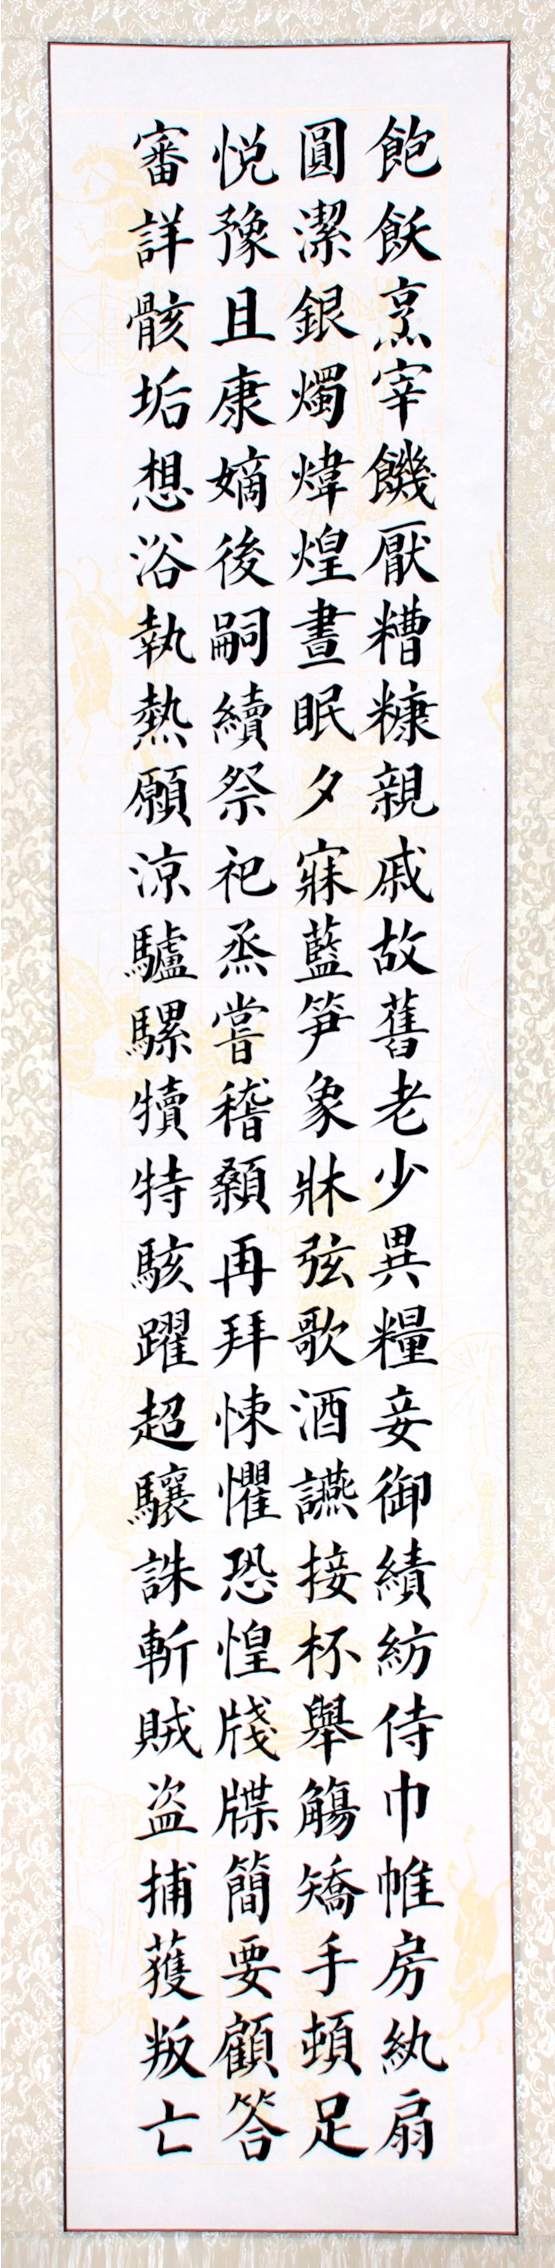 飽飫烹宰饑厭糟糠親戚故舊老少異糧妾御績紡侍巾帷房紈扇
圓潔銀燭煒煌晝眠夕寐藍笋象牀弦歌酒讌接杯舉觴矯手頓足
悦豫且康嫡後嗣續祭祀烝嘗稽顙再拜悚懼恐惶牋牒簡要顧答
審詳骸垢想浴執熱願涼驢騾犢特駭躍超驤誅斬賊盗捕獲叛亡